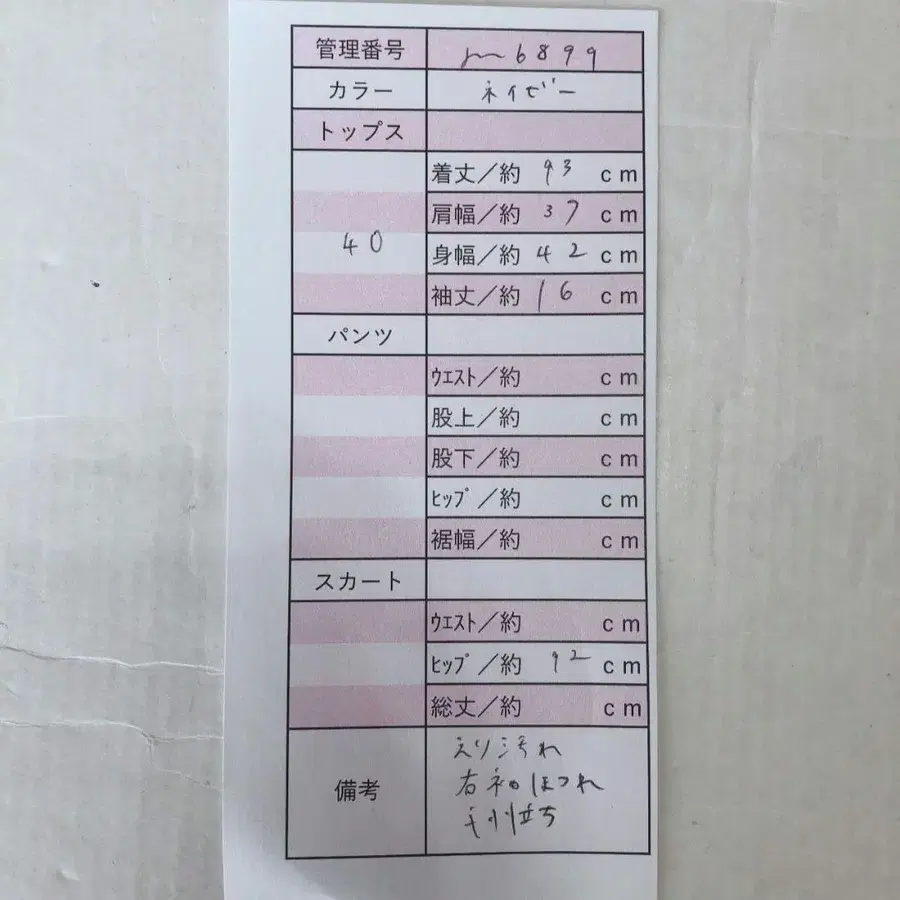 管理番号 jm6899
カラー ネイビー
トップス
40
着丈／約 93 cm
肩幅／約 37 cm
身幅／約 42 cm
袖丈／約 16 cm
パンツ
ｳｴｽﾄ／約 cm
股上／約 cm
股下／約 cm
ﾋｯﾌﾟ／約 cm
裾幅／約 cm
スカート
ｳｴｽﾄ／約 cm
ﾋｯﾌﾟ／約 92 cm
総丈／約 cm
備考
えり汚れ
右袖ほつれ
毛羽立ち